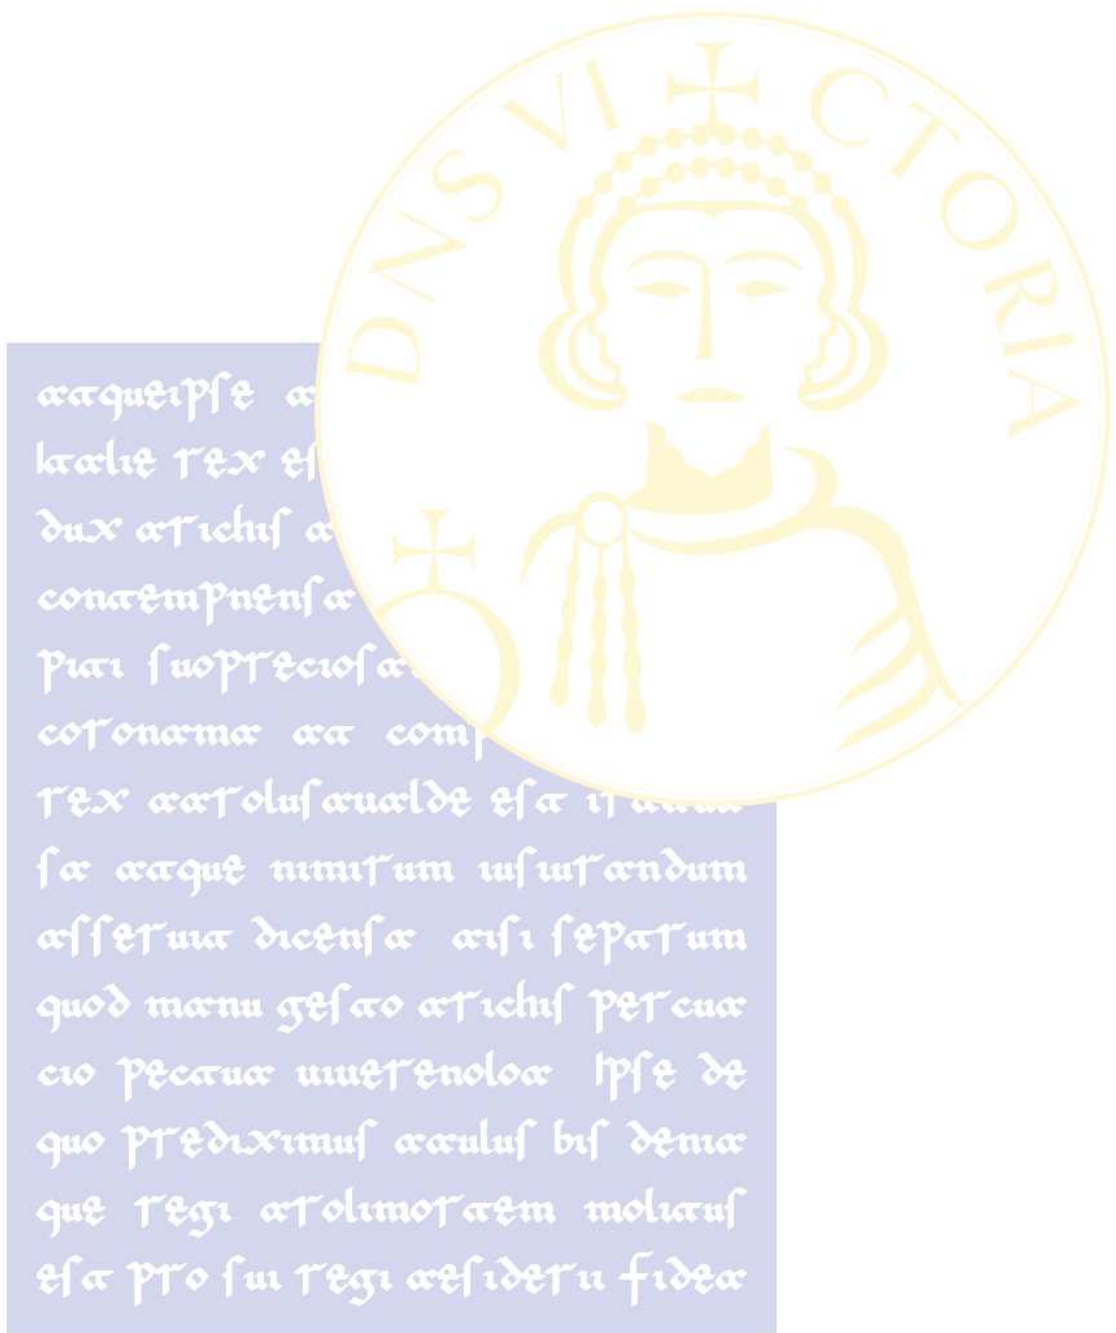 atqueipse a
Italie rex es
dux arichis a
contempnensa
piti suopreciosa
coronama at comp
rex aarolusaualde est
sa atque nimirum iusiurandum
asseruit dicensa aisi septrum
quod manu gesto arichis percua
cio pectua uiuerenoloa Ipse de
quo prediximus aaulus bis denia
que regi arolimortem molitus
est pro sui regi aesiderii fidea
DNS VI CTORIA